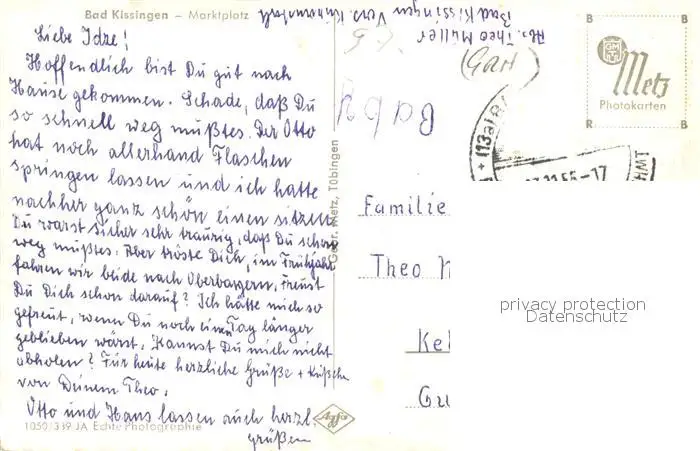 Bad Kissingen – Marktplatz
Abs. Theo Müller
Bad Kissingen
Liebe Idze!
Hoffendlich bist Du gut nach
Hause gekommen. Schade, daß Du
so schnell weg mußtes. Der Otto
hat noch allerhand Flaschen
springen lassen und ich hatte
nachher ganz schön einen sitzen
Du warst sicher sehr traurig, daß Du schon
weg mußtes. Aber tröste Dich, im Frühjahr
fahren wir beide nach Oberbayern, freust
Du Dich schon darauf? Ich hätte mich so
gefreut, wenn Du noch einen Tag länger
geblieben wärst. Kannst Du mich nicht
abholen? Für heute herzliche Grüße + Küßche
von Deinem Theo.
Otto und Hans lassen auch herzl.
grüßen
1050/339 JA Echte Photographie
Agfa
Gebr. Metz, Tübingen
B B
Metz
Photokarten
R B
(13a) BA
55-17
Familie
Theo M
Kel
Gu
privacy protection
Datenschutz